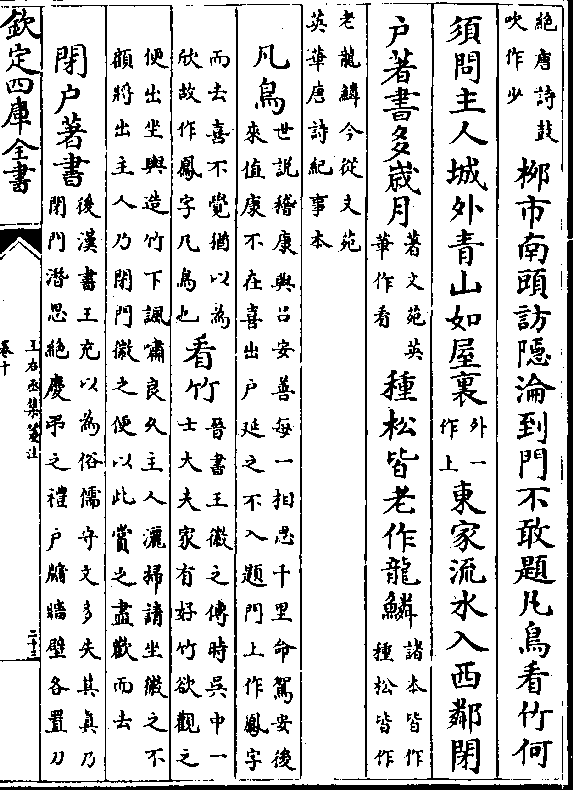 絶唐詩鼓
吹作少
栁市南頭訪隠淪到門不敢題凡鳥看竹何
須問主人城外青山如屋裏
外一
作上
東家流水入西鄰閉
户著書多歳月
著文苑英
華作看
種松皆老作龍鱗
諸本皆作
種松皆作
老龍鱗今從文苑
英華唐詩紀事本
凡鳥
世説稽康與吕安善每一相思千里命駕安後
來值康不在喜出户延之不入題門上作鳳字
而去喜不覺猶以為
欣故作鳳字凡鳥也
看竹
晉書王徽之傳時吳中一
士大夫家有好竹欲觀之
便出坐輿造竹下諷嘯良久主人灑掃請坐徽之不
顧將出主人乃閉門徽之便以此賞之盡歡而去
閉户著書
後漢書王充以為俗儒守文多失其真乃
閉門潛思絶慶弔之禮户牖牆壁各置刀
欽定四庫全書
王右丞集箋注
卷十
二十三